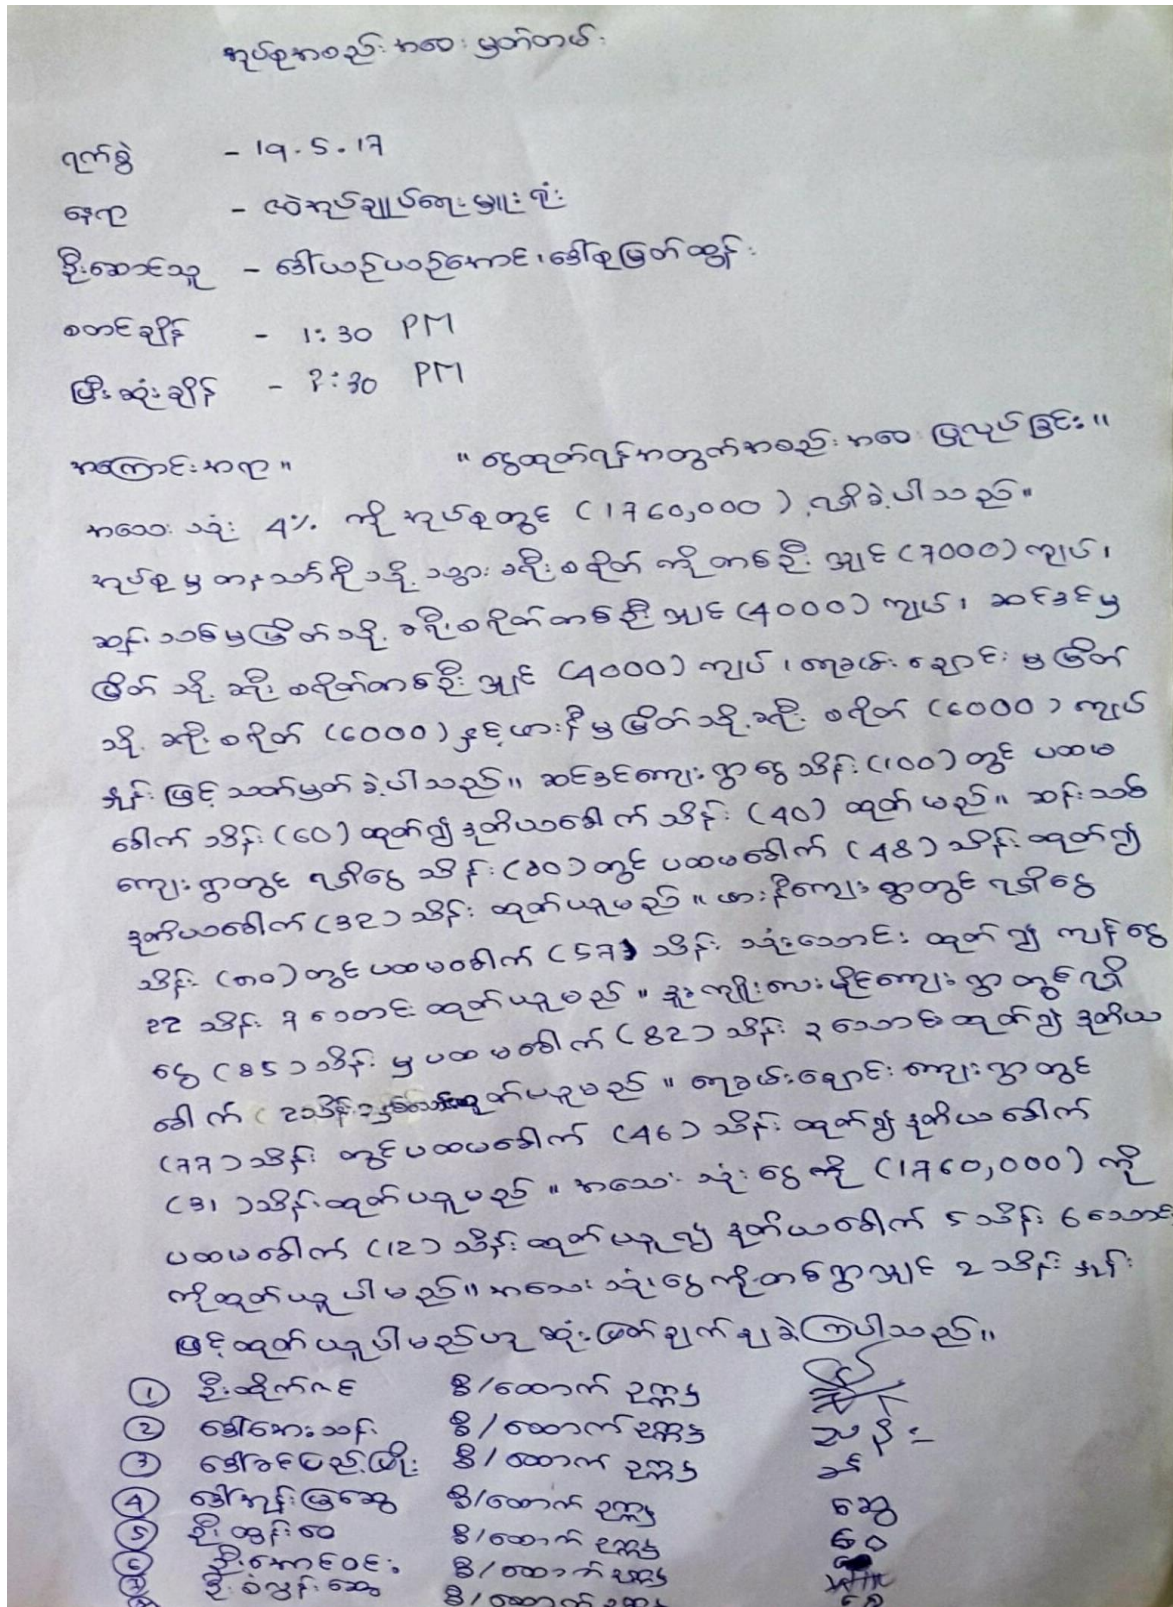 အုပ်စုအစည်းအဝေး မှတ်တမ်း
ရက်စွဲ - 19.5.17
နေရာ - ဇီဝဲအုပ်ချုပ်ရေးမှူးရုံး
ဦးဆောင်သူ - ဒေါ်ယဉ်ယဉ်အောင်၊ ဒေါ်စုမြတ်ထွန်း
စတင်ချိန် - 1:30 PM
ပြီးဆုံးချိန် - :30 PM
အကြောင်းအရာ။ "ငွေထုတ်ရန်အတွက်အစည်းအဝေး ပြုလုပ်ခြင်း။
အသေးသုံး 4% ကို အုပ်စုတွင် (1760,000) ရရှိခဲ့ပါသည်။
အုပ်စုမှ တနင်္သာရီသို့ သွားခရီးစရိတ် ကို တစ်ဦးလျှင် (7000) ကျပ်၊
ဆန်းသစ်မှမြိတ်သို့ ခရီးစရိတ်တစ်ဦးလျှင် (4000) ကျပ်၊ ဆင်ဒင်မှ
မြိတ်သို့ ခရီးစရိတ်တစ်ဦးလျှင် (4000) ကျပ်၊ ရေခမ်းချောင်းမှ မြိတ်
သို့ ခရီးစရိတ် (6000) နှင့် ဖားနီမှ မြိတ်သို့ ခရီးစရိတ် (6000) ကျပ်
နှုန်းဖြင့် သတ်မှတ်ခဲ့ပါသည်။ ဆင်ဒင်ကျေးရွာ ငွေသိန်း(100)တွင် ပထမ
ခေါက် သိန်း(60) ထုတ်၍ ဒုတိယခေါက် သိန်း (40) ထုတ်မည်။ ဆန်းသစ်
ကျေးရွာတွင် ရရှိငွေ သိန်း(80)တွင် ပထမခေါက် (48) သိန်းထုတ်၍
ဒုတိယခေါက် (32) သိန်း ထုတ်ယူမည်။ ဖားနီကျေးရွာတွင် ရရှိငွေ
သိန်း (၈၀) တွင် ပထမခေါက် (57) သိန်း သုံးသောင်း ထုတ်၍ ကျန်ငွေ
22 သိန်း 7 သောင်း ထုတ်ယူမည်။ ဒူးကျိုးလေးမိုင်ကျေးရွာတွင် ရရှိ
ငွေ (85) သိန်းမှ ပထမခေါက် (82) သိန်း ၃ သောင်း ထုတ်၍ ဒုတိယ
ခေါက် (2သိန်း ထုတ်ယူမည်။ ရေခမ်းချောင်းကျေးရွာတွင်
(77) သိန်း တွင် ပထမခေါက် (46) သိန်း ထုတ်၍ ဒုတိယခေါက်
(31) သိန်း ထုတ်ယူမည်။ အသေးသုံးငွေကို (1760,000) ကို
ပထမခေါက် (12) သိန်း ထုတ်ယူ၍ ဒုတိယခေါက် 5 သိန်း 6 သောင်း
ကိုထုတ်ယူပါမည်။ အသေးသုံးငွေကို တစ်ရွာလျှင် 2 သိန်းနှုန်း
ဖြင့်ထုတ်ယူပါမည်ဟု ဆုံးဖြတ်ချက်ချခဲ့ကြပါသည်။
① ဦးထိုက်ဇင် စီ/ထောက် ဥက္ကဋ္ဌ
② ဒေါ်အေးသန်း စီ/ထောက် ဥက္ကဋ္ဌ
③ ဒေါ်ခင်ပြည့်ဖြိုး စီ/ထောက် ဥက္ကဋ္ဌ
④ ဒေါ်အုန်းမြဆွေ စီ/ထောက် ဥက္ကဋ္ဌ ဆွေ
⑤ ဦးထွန်းဝေ စီ/ထောက် ဥက္ကဋ္ဌ ဝေ
⑥ ဦးအောင်ဝင်း စီ/ထောက် ဥက္ကဋ္ဌ
⑦ ဦးစံလွန်းဆွေ စီ/ထောက် ဥက္ကဋ္ဌ Win